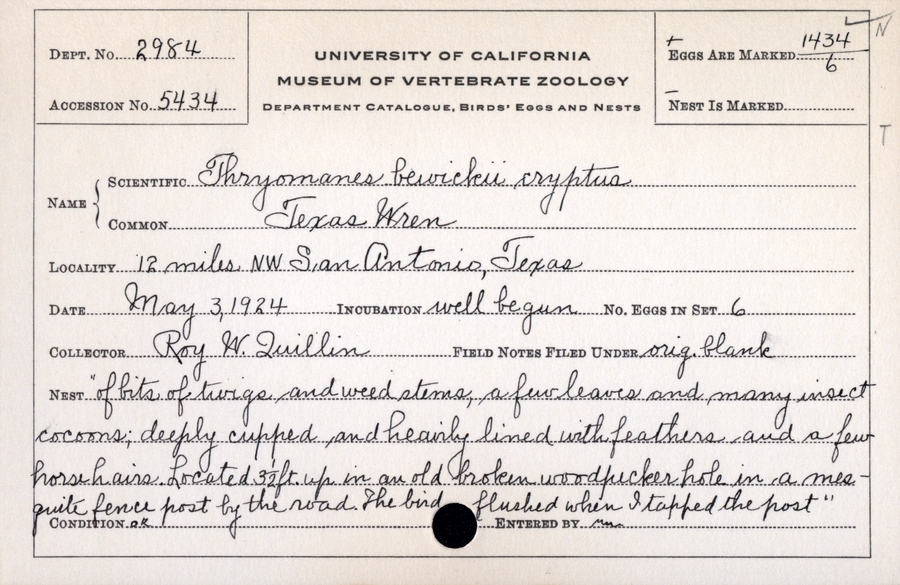 Dept. No. 2984
Accession No. 5434
UNIVERSITY OF CALIFORNIA
MUSEUM OF VERTEBRATE ZOOLOGY
Department Catalogue, Birds' Eggs and Nests
+
Eggs Are Marked 1434/6
Nest Is Marked
N
T
Name { Scientific Thryomanes bewickii cryptus
Common Texas Wren
Locality 12 miles NW San Antonio, Texas
Date May 3, 1924 Incubation well begun No. Eggs in Set 6
Collector Roy W. Quillin Field Notes Filed Under orig. blank
Nest "of bits of twigs and weed stems, a few leaves and many insect
cocoons; deeply cupped and heavily lined with feathers and a few
horsehairs. Located 3½ ft. up in an old broken woodpecker hole in a mes-
quite fence post by the road. The bird flushed when I tapped the post"
Condition ok Entered by